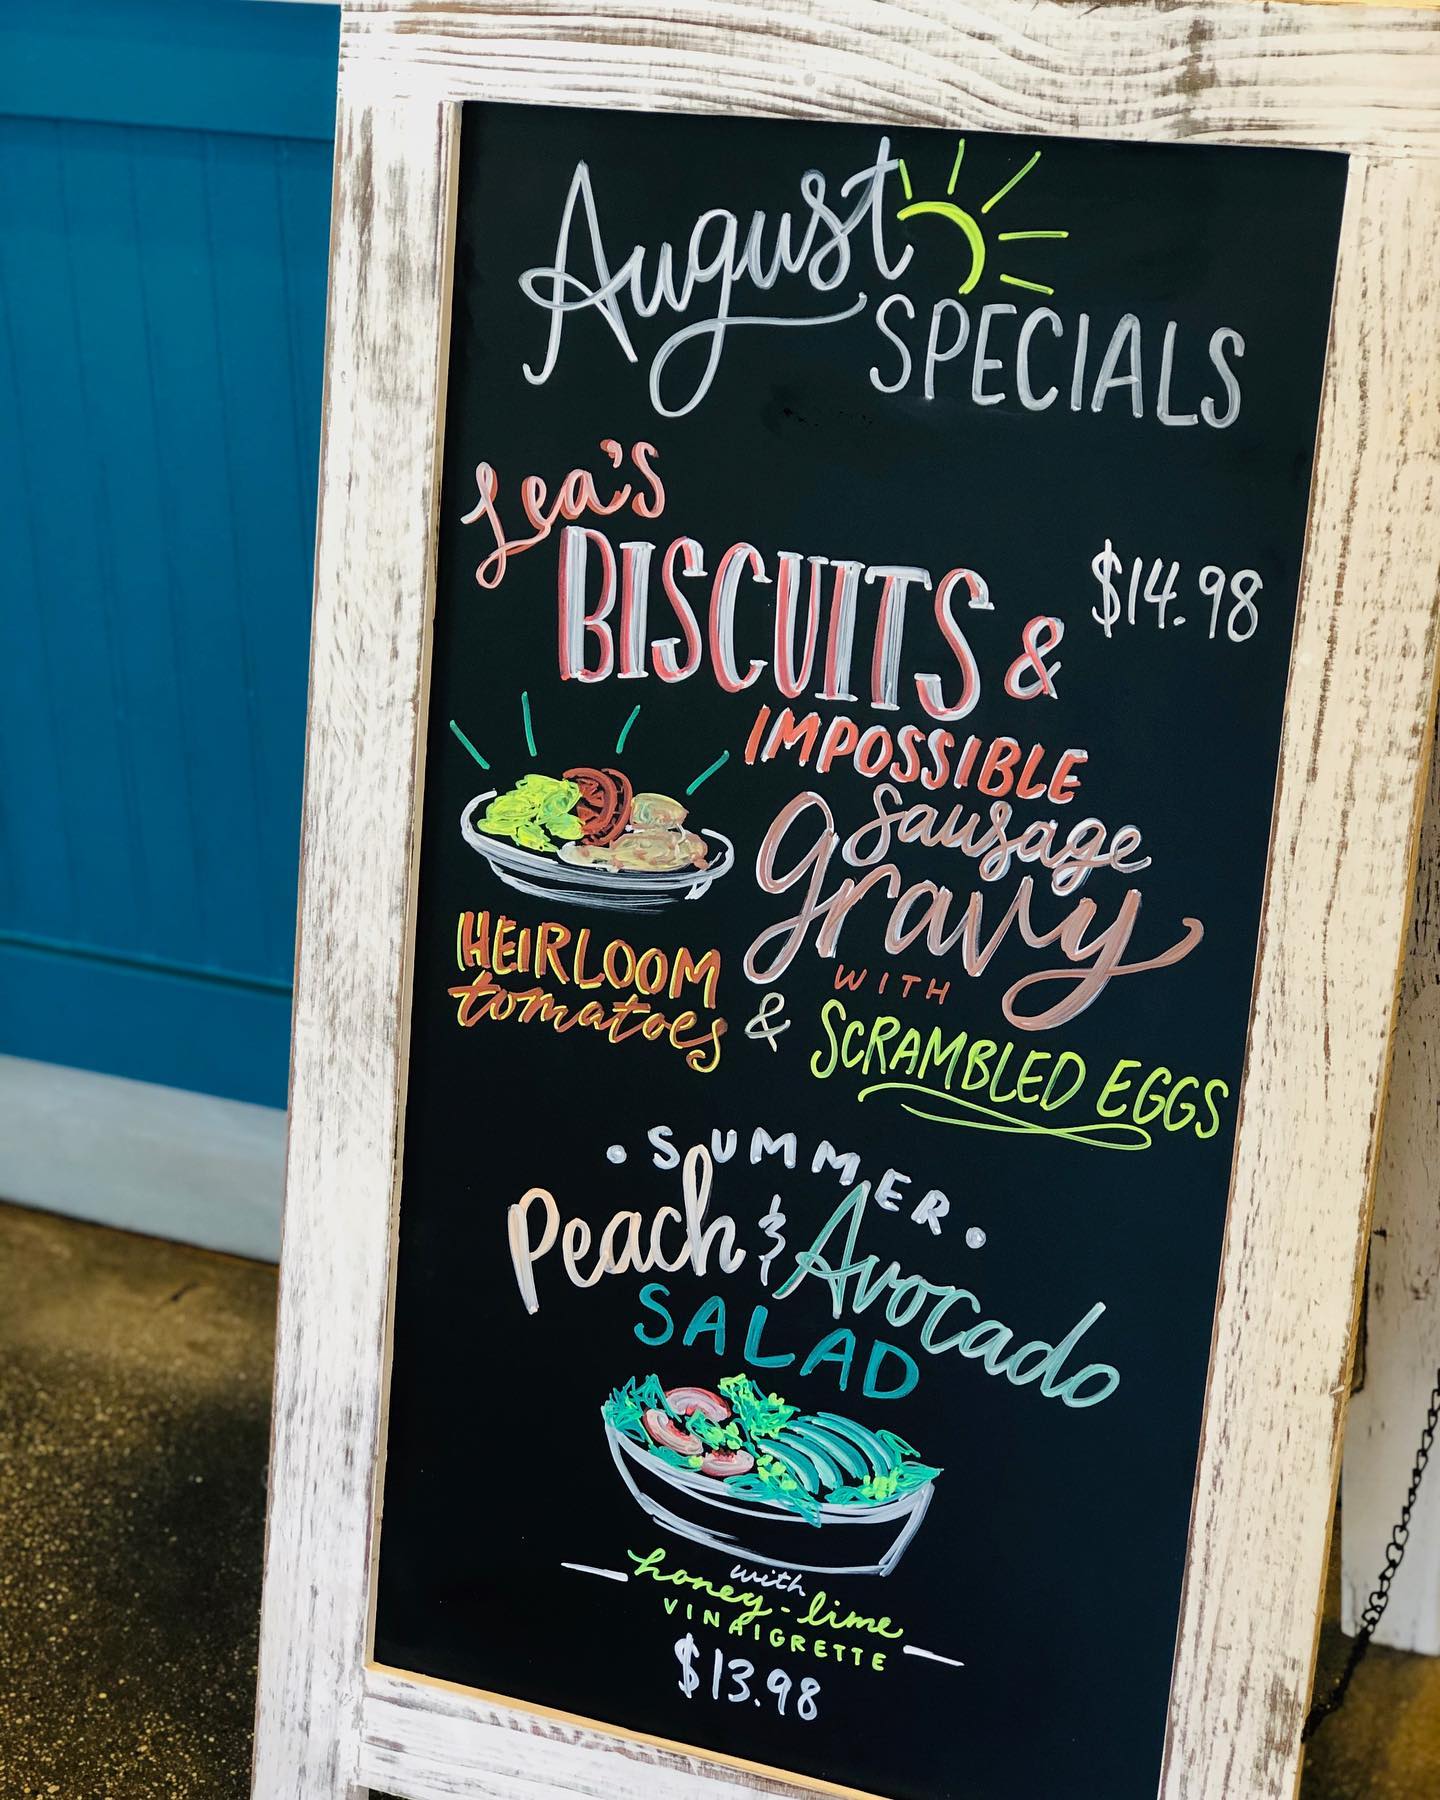 August
SPECIALS
Lea's
BISCUITS & $14.98
IMPOSSIBLE
sausage
gravy
WITH
HEIRLOOM
tomatoes & SCRAMBLED EGGS
• SUMMER •
Peach & Avocado
SALAD
with
honey-lime
VINAIGRETTE
$13.98